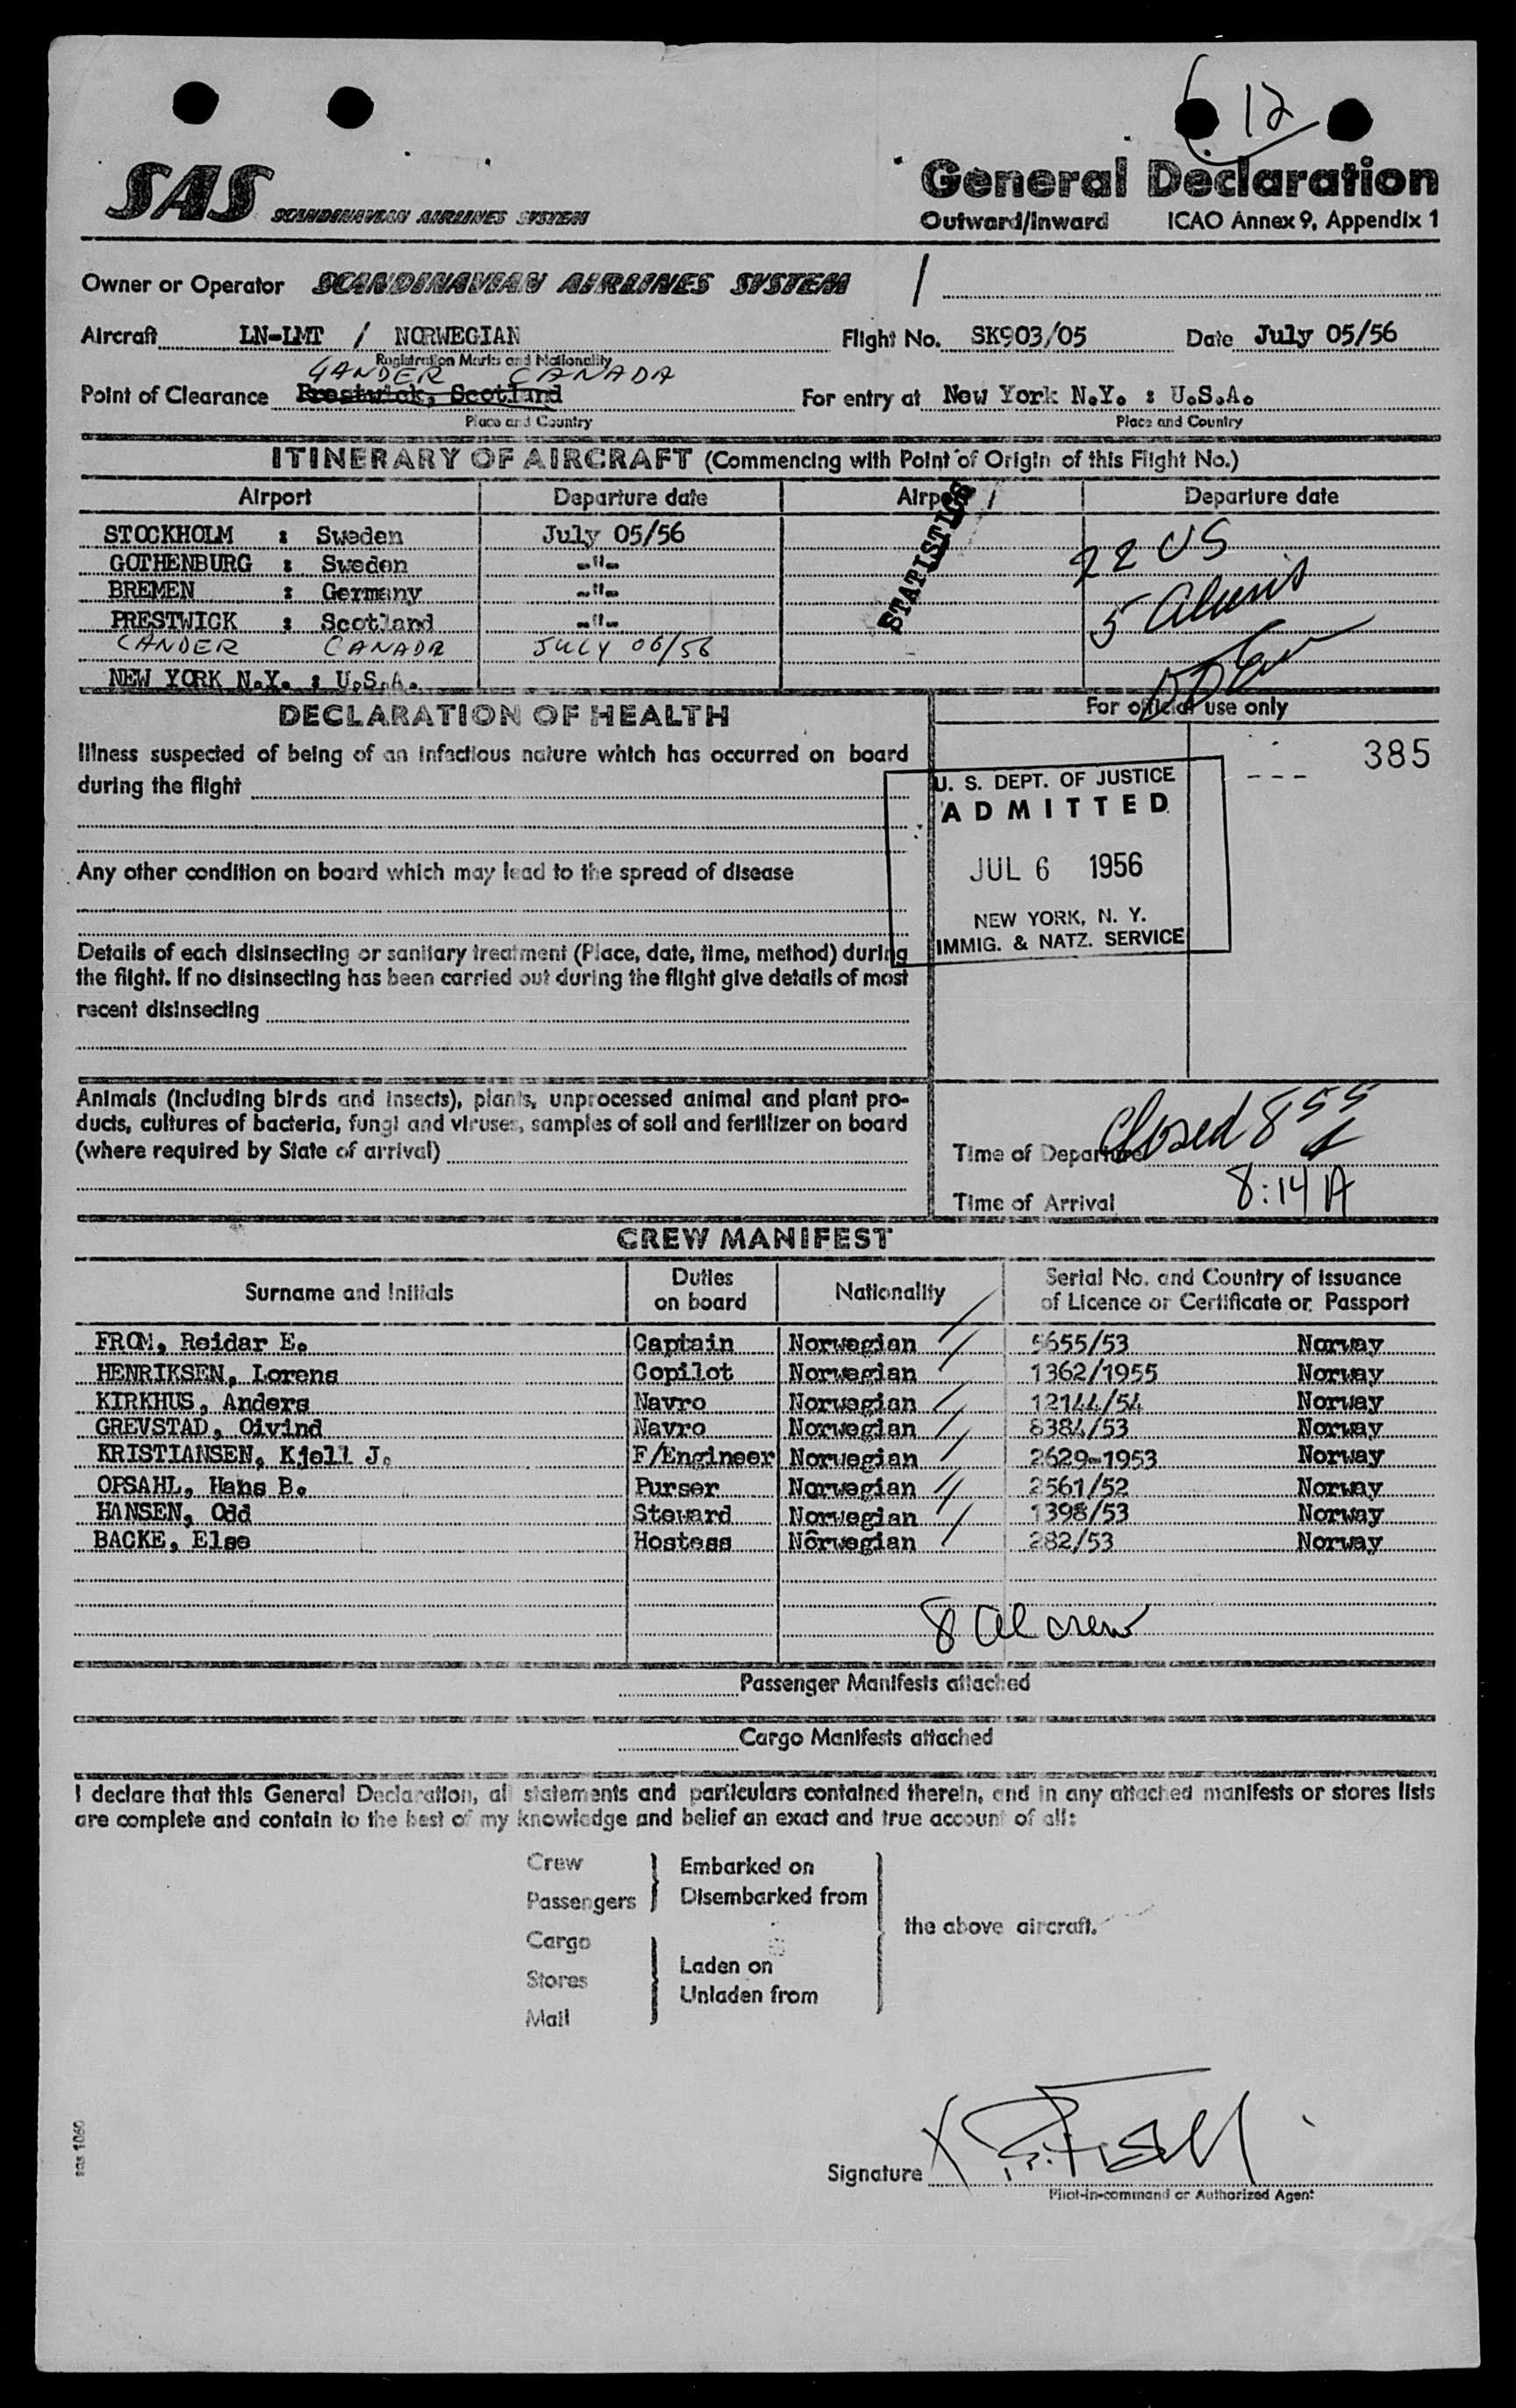 12
SAS SCANDINAVIAN AIRLINES SYSTEM
General Declaration
Outward/Inward ICAO Annex 9, Appendix 1
Owner or Operator SCANDINAVIAN AIRLINES SYSTEM /
Aircraft LN-LMT / NORWEGIAN Flight No. SK903/05 Date July 05/56
Registration Marks and Nationality
GANDER CANADA
Point of Clearance Prestwick, Scotland For entry at New York N.Y. : U.S.A.
Place and Country Place and Country
ITINERARY OF AIRCRAFT (Commencing with Point of Origin of this Flight No.)
Airport Departure date Airport Departure date
STATISTICS
STOCKHOLM : Sweden July 05/56
22 US
GOTHENBURG : Sweden -"-
BREMEN : Germany -"-
5 aliens
PRESTWICK : Scotland -"-
GANDER CANADA JULY 06/56
NEW YORK N.Y. : U.S.A.
DECLARATION OF HEALTH
For official use only
Illness suspected of being of an infectious nature which has occurred on board
during the flight
385
U. S. DEPT. OF JUSTICE
ADMITTED
JUL 6 1956
NEW YORK, N. Y.
IMMIG. & NATZ. SERVICE
Any other condition on board which may lead to the spread of disease
Details of each disinsecting or sanitary treatment (Place, date, time, method) during
the flight. If no disinsecting has been carried out during the flight give details of most
recent disinsecting
Animals (including birds and insects), plants, unprocessed animal and plant pro-
ducts, cultures of bacteria, fungi and viruses, samples of soil and fertilizer on board
(where required by State of arrival)
Time of Departure Closed 8 55
Time of Arrival 8:14 A
CREW MANIFEST
Surname and Initials Duties on board Nationality Serial No. and Country of Issuance of Licence or Certificate or Passport
FROM, Reidar E. Captain Norwegian 5655/53 Norway
HENRIKSEN, Lorens Copilot Norwegian 1362/1955 Norway
KIRKHUS, Anders Navro Norwegian 12144/54 Norway
GREVSTAD, Oivind Navro Norwegian 8384/53 Norway
KRISTIANSEN, Kjell J. F/Engineer Norwegian 2629-1953 Norway
OPSAHL, Hans B. Purser Norwegian 2561/52 Norway
HANSEN, Odd Steward Norwegian 1398/53 Norway
BACKE, Else Hostess Norwegian 282/53 Norway
8 al crew
Passenger Manifests attached
Cargo Manifests attached
I declare that this General Declaration, all statements and particulars contained therein, and in any attached manifests or stores lists
are complete and contain to the best of my knowledge and belief an exact and true account of all:
Crew
Passengers
Embarked on
Disembarked from
Cargo
Stores
Mail
Laden on
Unladen from
the above aircraft.
Signature X
Pilot-in-command or Authorized Agent
sas 1060